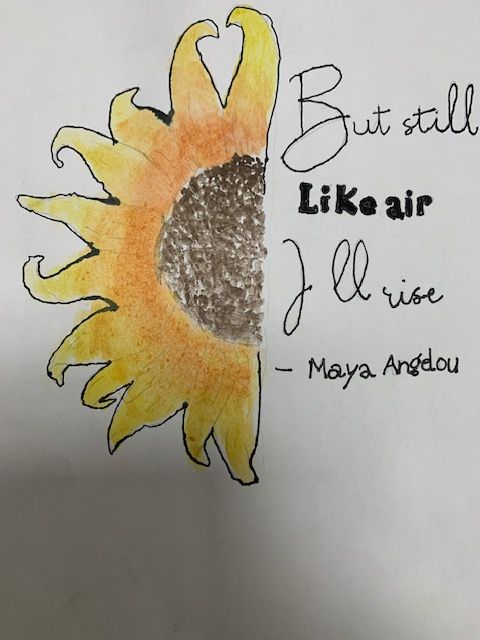 But still
Like air
I ll rise
- Maya Angdou